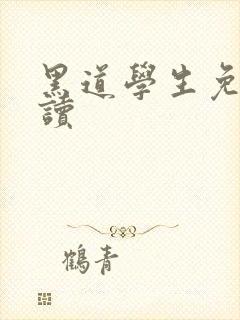 黑道學生免
讀
鶴青